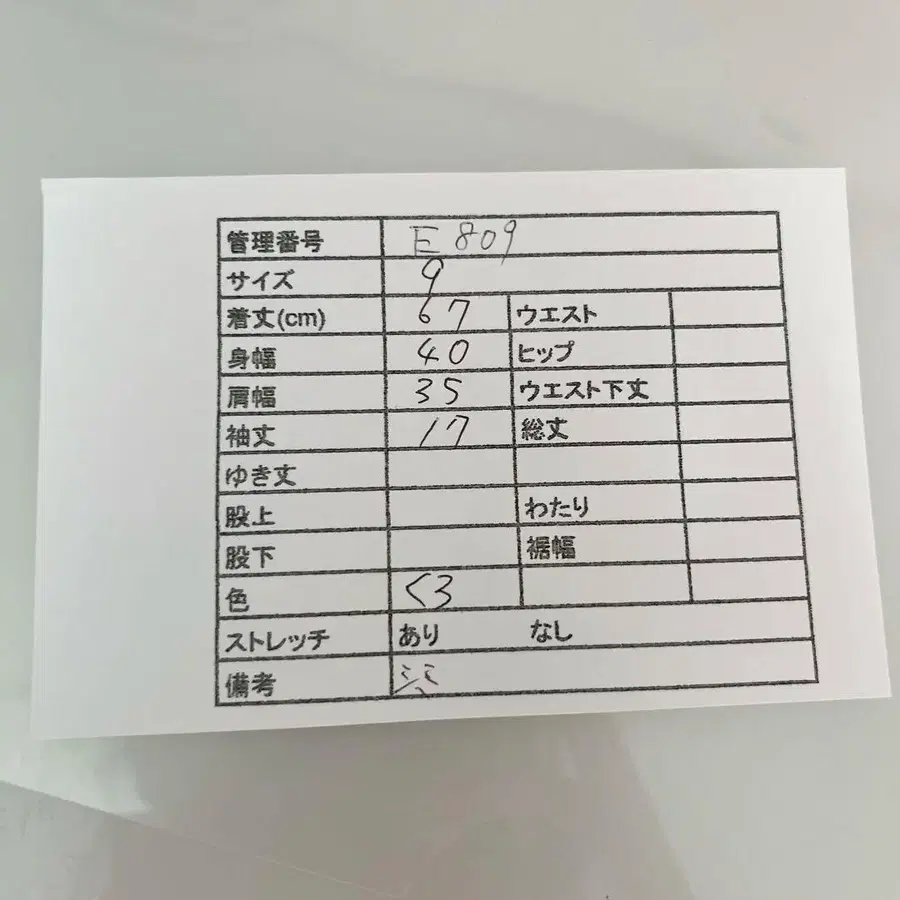 管理番号 E809
サイズ 9
着丈(cm) 67 ウエスト
身幅 40 ヒップ
肩幅 35 ウエスト下丈
袖丈 17 総丈
ゆき丈
股上 わたり
股下 裾幅
色 くろ
ストレッチ あり なし
備考